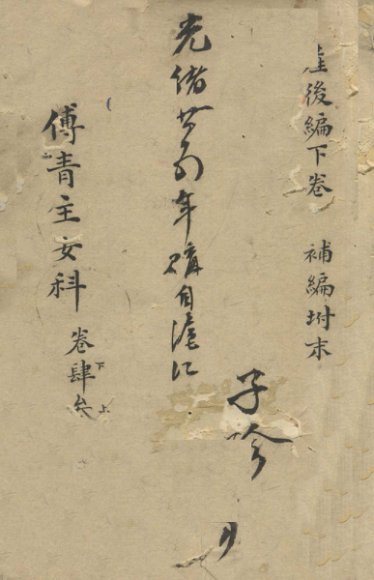 產後編下卷 補編坿末
子
光緒廿年購自滬江
傅青主女科 卷肆下叁上